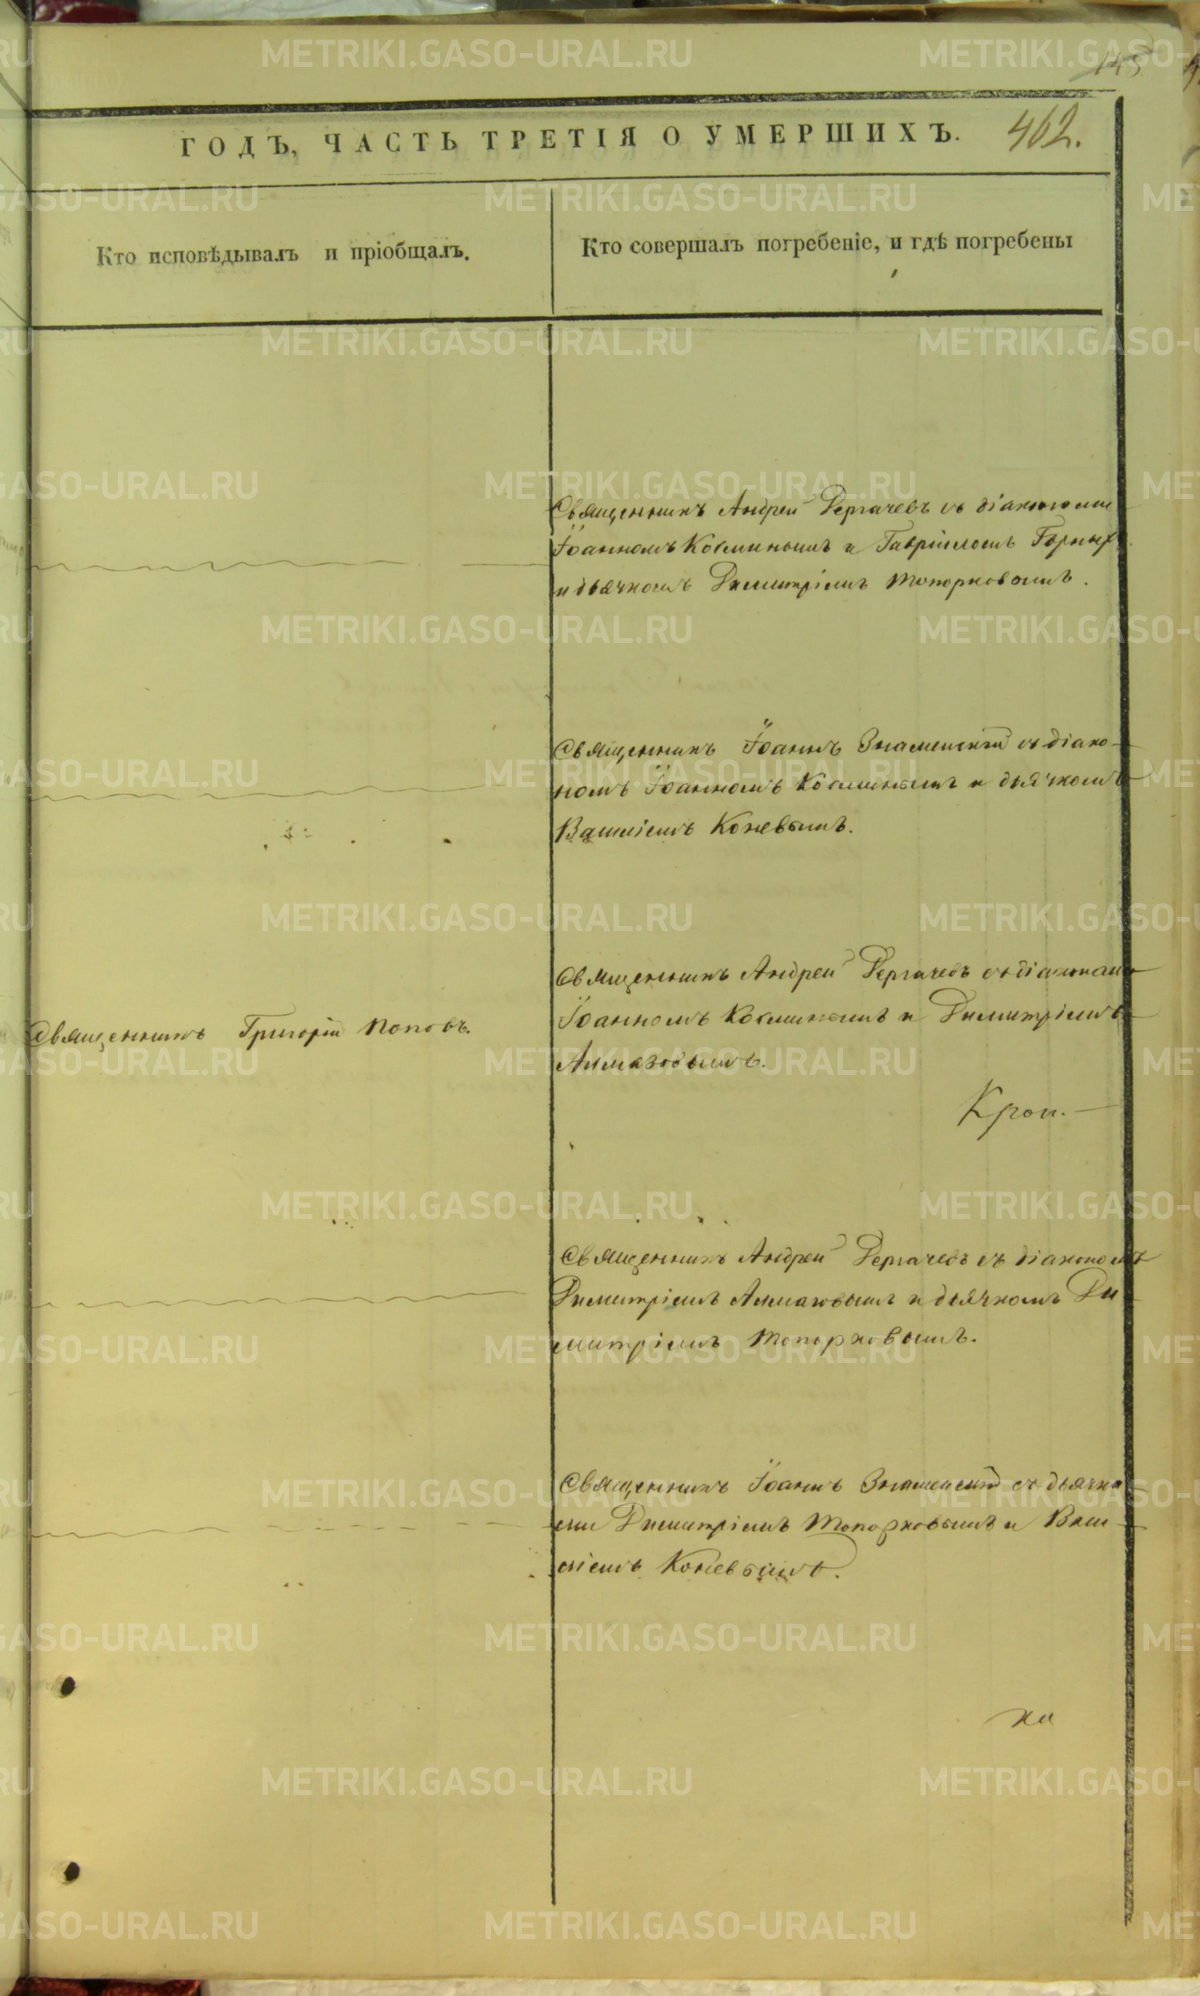 145
462.
ГОДЪ, ЧАСТЬ ТРЕТІЯ О УМЕРШИХЪ.
Кто исповѣдывалъ и пріобщалъ.
Кто совершалъ погребеніе, и гдѣ погребены
Священникъ Андрей Дергачевъ съ діаконами
Іоанномъ Косминымъ и Гавріиломъ Горныхъ
и дьячкомъ Димитріемъ Топорковымъ.
Священникъ Іоаннъ Знаменскій съ діако-
номъ Іоанномъ Косминымъ и дьячкомъ
Василіемъ Коневымъ.
Священникъ Григорій Поповъ.
Священникъ Андрей Дергачевъ съ діаконами
Іоанномъ Косминымъ и Димитріемъ
Алмазовымъ.
Священникъ Андрей Дергачевъ съ діакономъ
Димитріемъ Алмазовымъ и дьячкомъ Ди
митріемъ Топорковымъ.
Священникъ Іоаннъ Знаменскій съ дьячка
ми Димитріемъ Топорковымъ и Васи-
ліемъ Коневымъ.
METRIKI.GASO-URAL.RU